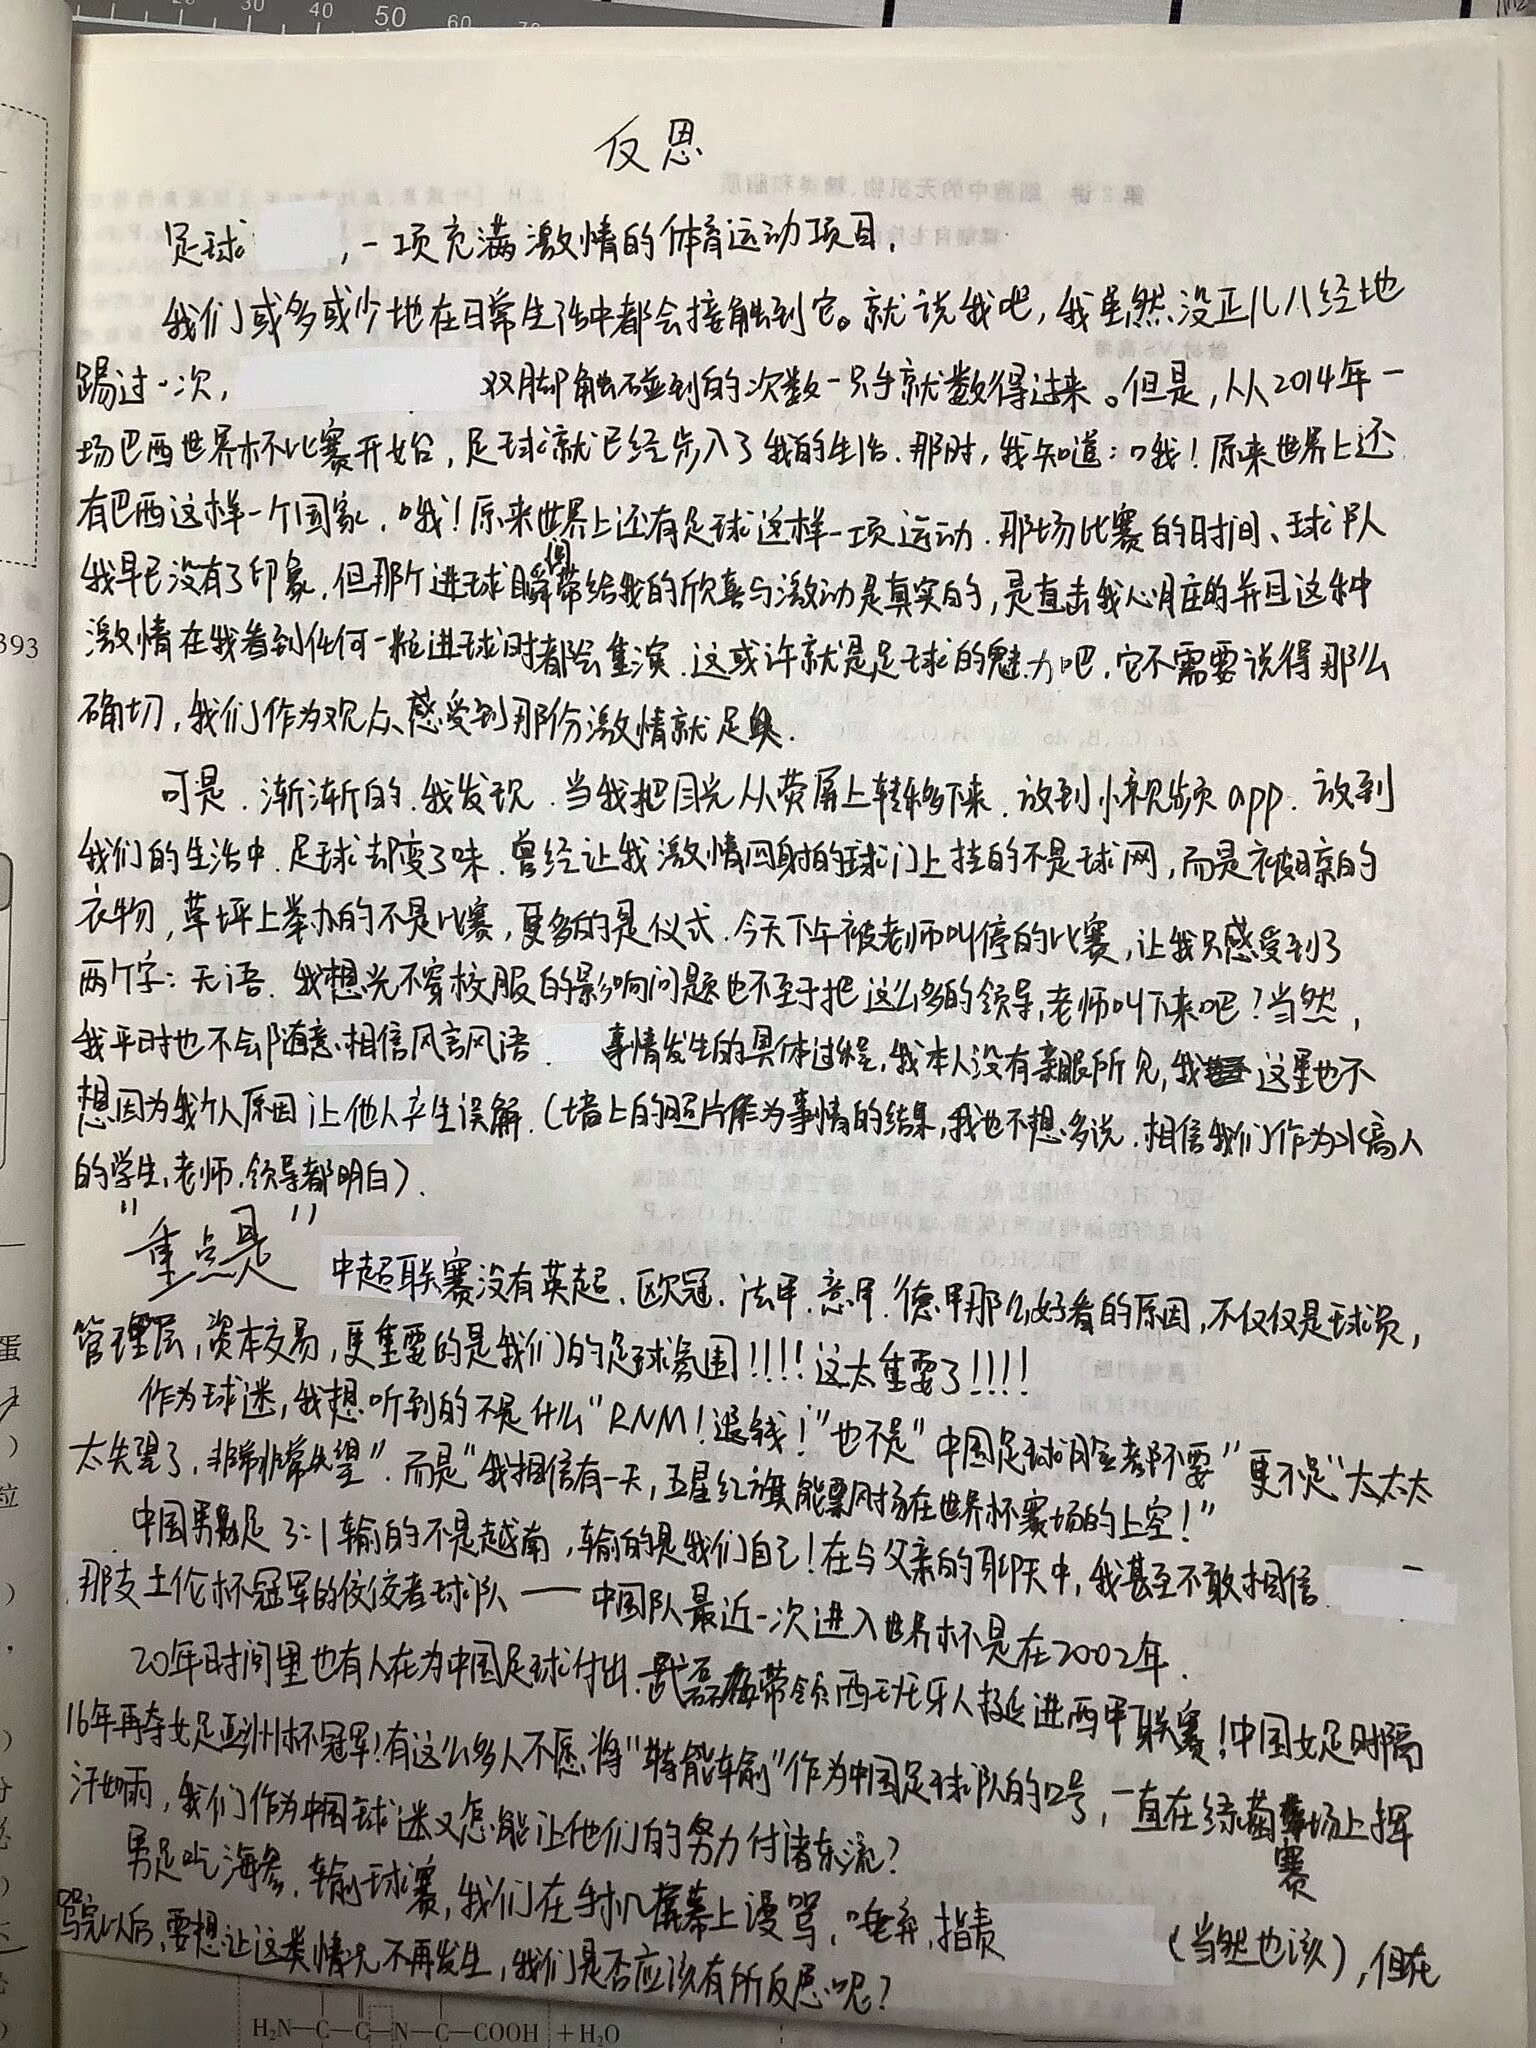 30 40 50 60 70
反思
足球 ,一项充满激情的体育运动项目,
我们或多或少地在日常生活中都会接触到它。就说我吧,我虽然没正儿八经地
踢过一次, 双脚触碰到的次数一只手就数得过来。但是,从2014年一
场巴西世界杯比赛开始,足球就已经步入了我的生活.那时,我知道:哦!原来世界上还
有巴西这样一个国家.哦!原来世界上还有足球这样一项运动.那场比赛的时间、球队
我早已没有了印象,但那个进球瞬间带给我的欣喜与激动是真实的,是直击我心底的并且这种
激情在我看到任何一粒进球时都会重演.这或许就是足球的魅力吧,它不需要说得那么
确切,我们作为观众感受到那份激情就足矣.
可是.渐渐的.我发现.当我把目光从荧屏上转移下来.放到小视频app.放到
我们的生活中.足球却变了味.曾经让我激情四射的球门上挂的不是球网,而是被晾的
衣物,草坪上举办的不是比赛,更多的是仪式.今天下午被老师叫停的比赛,让我只感受到了
两个字:无语.我想光不穿校服的影响问题也不至于把这么多的领导,老师叫下来吧?当然,
我平时也不会随意相信风言风语 事情发生的具体过程,我本人没有亲眼所见,我 这里也不
想因为我个人原因 让他人产生误解.(墙上的照片作为事情的结果,我也不想多说.相信我们作为水高人
的学生,老师,领导都明白).
"重点是" 中超联赛没有英超、欧冠.法甲.意甲.德甲那么好看的原因,不仅仅是球员,
管理层,资本交易,更重要的是我们的足球氛围!!!!这太重要了!!!!
作为球迷,我想听到的不是什么"RNM!退钱!"也不是"中国足球 都不要"更不是"太太太
太失望了,非常非常失望".而是"我相信有一天,五星红旗能飘扬在世界杯赛场的上空!"
中国男足3:1输的不是越南,输的是我们自己!在与父亲的聊天中,我甚至不敢相信
那支土伦杯冠军的佼佼者球队——中国队最近一次进入世界杯是在2002年.
20年时间里也有人在为中国足球付出.武磊带领西班牙人挺进西甲联赛!中国女足时隔
16年再夺女足亚洲杯冠军!有这么多人不愿将"特能输"作为中国足球队的口号,一直在绿茵赛场上挥
汗如雨,我们作为中国球迷又怎能让他们的努力付诸东流?
男足吃海参.输球赛,我们在手机屏幕上谩骂,唾弃,指责 (当然也该),但在
骂完以后,要想让这类情况不再发生,我们是否应该有所反思呢?
393
H₂N—C—C—N—C—COOH + H₂O